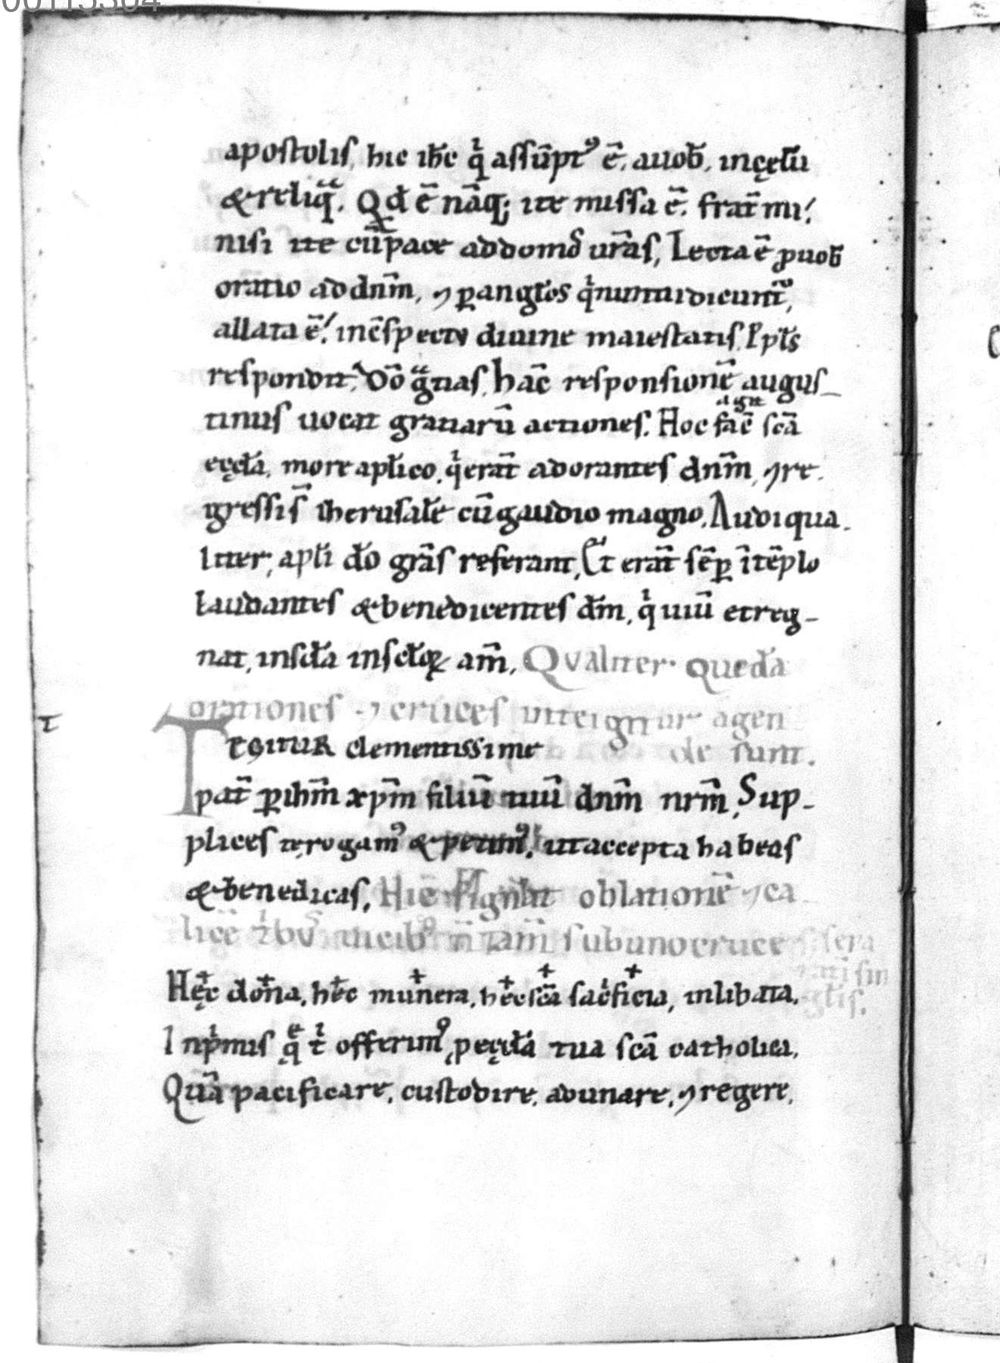 apostolis, hic ih̅c q̍ assūpt᾽ ē. auob̅, incęlū
& reliq̄. Qd̄ ē nāq; ite missa ē. frat̄ mi!
nisi ite cū pace addomō ur̄as, Lecta ē ꝓuob̅
oratio addn̄m, ⁊ ꝑangl̄os q̍nuntuidicunt᾽,
allata ē! incs̄pectu diuine maiestatis. I pl̄s
respondit, Dō gr̄tias, hāc responsionē augus_
tinus uocat gratiarū actiones. Hoc fac̄ scā
agit
ecc̨l̄a, more apl̄ico, q̍ erat̄ adorantes dn̄m, ⁊re.
gressi s̄ iherusalē cū gaudio magno, Audi qua_
liter, apl̄i dō grās referant, Et erat̄ sēꝑ ī tēplo
laudantes & benedicentes dm̄, q̍ uiū et reg_
nat, insc̄la insc̄lo℞ am̄, Qualiter quedā
orationes ⁊ cruces inteigitur agen
de sunt.
T
TEGITUR clementissime
pat̄ ꝑ ih̅m xp̄m filiū tuū dn̄m nrm̄, Sup_
plices te, rogam᾽ & petim᾽, uti accepta habeas
& b̅enedicas, Hic signat oblationē ⁊ ca
licē sub uno cruce
Hęc don̄a, hęc munera, hęc scā sac̍ficia, inlibata,
Inp̍mis q̄ t̍ offerim᾽, ꝓecc̨l̄a tua scā catholica,
Quā pacificare, custodire, adunare, ⁊ regere,